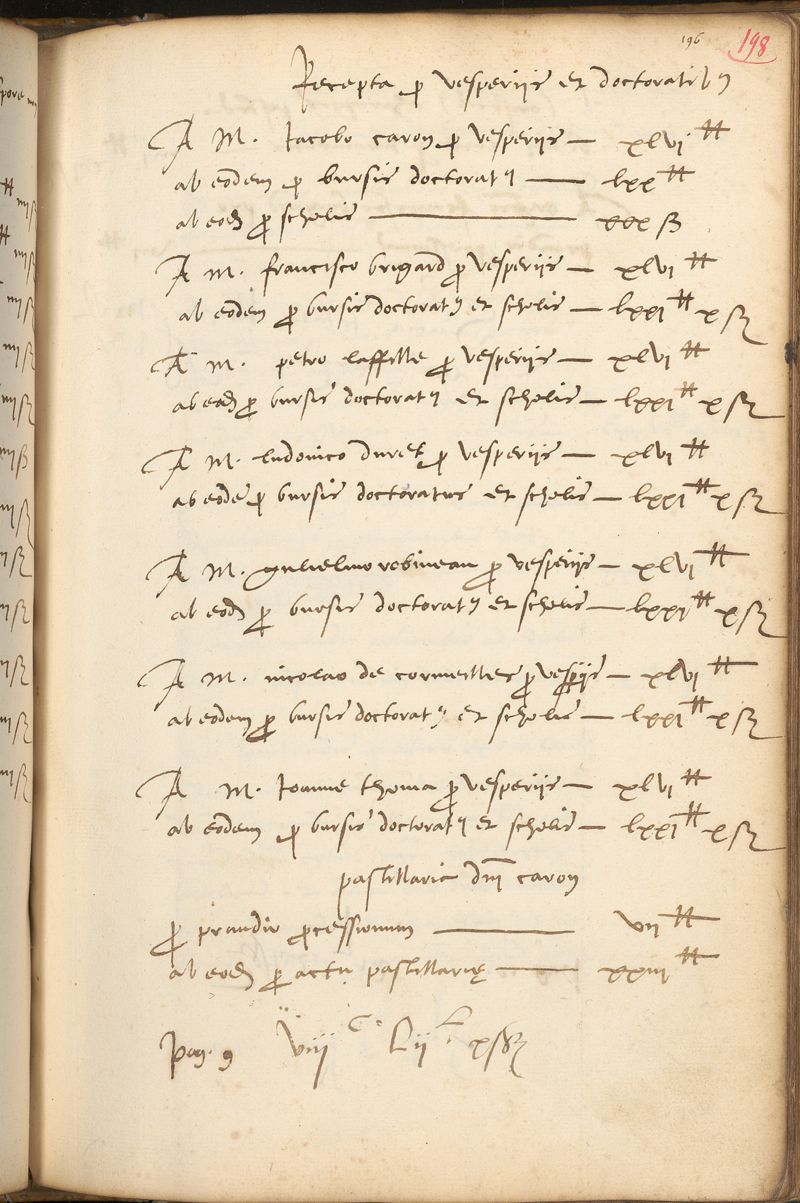 196 198
Recepta p vesperijs et doctoratibus
A M. Iacobo caron p vesperijs — xlvi ℔
ab eodem p bursis doctoratus — lxx ℔
ab eod p scholis — xxx ß
A M. francisco brigard p vesperijs — xlvi ℔
ab eodem p bursis doctoratus et scholis — lxxi ℔ x ß
A M. petro laffille p vesperijs — xlvi ℔
ab eod p bursis doctoratus et scholis — lxxi ℔ x ß
A M. ludovico duret p vesperijs — xlvi ℔
ab eode p bursis doctoratus et scholis — lxxi ℔ x ß
A M. gulielmo robineau p vesperijs — xlvi ℔
ab eod p bursis doctoratus et scholis — lxxi ℔ x ß
A M. nicolao de cormeilles p vesperijs — xlvi ℔
ab eodem p bursis doctoratus et scholis — lxxi ℔ x ß
A M. Ioanne thoma p vesperijs — xlvi ℔
ab eodem p bursis doctoratus et scholis — lxxi ℔ x ß
pastillaria dni caron
p prandio processionum — vii ℔
ab eod p actu pastillarię — xxiii ℔
Pag. 9 viij c Lij L x ß